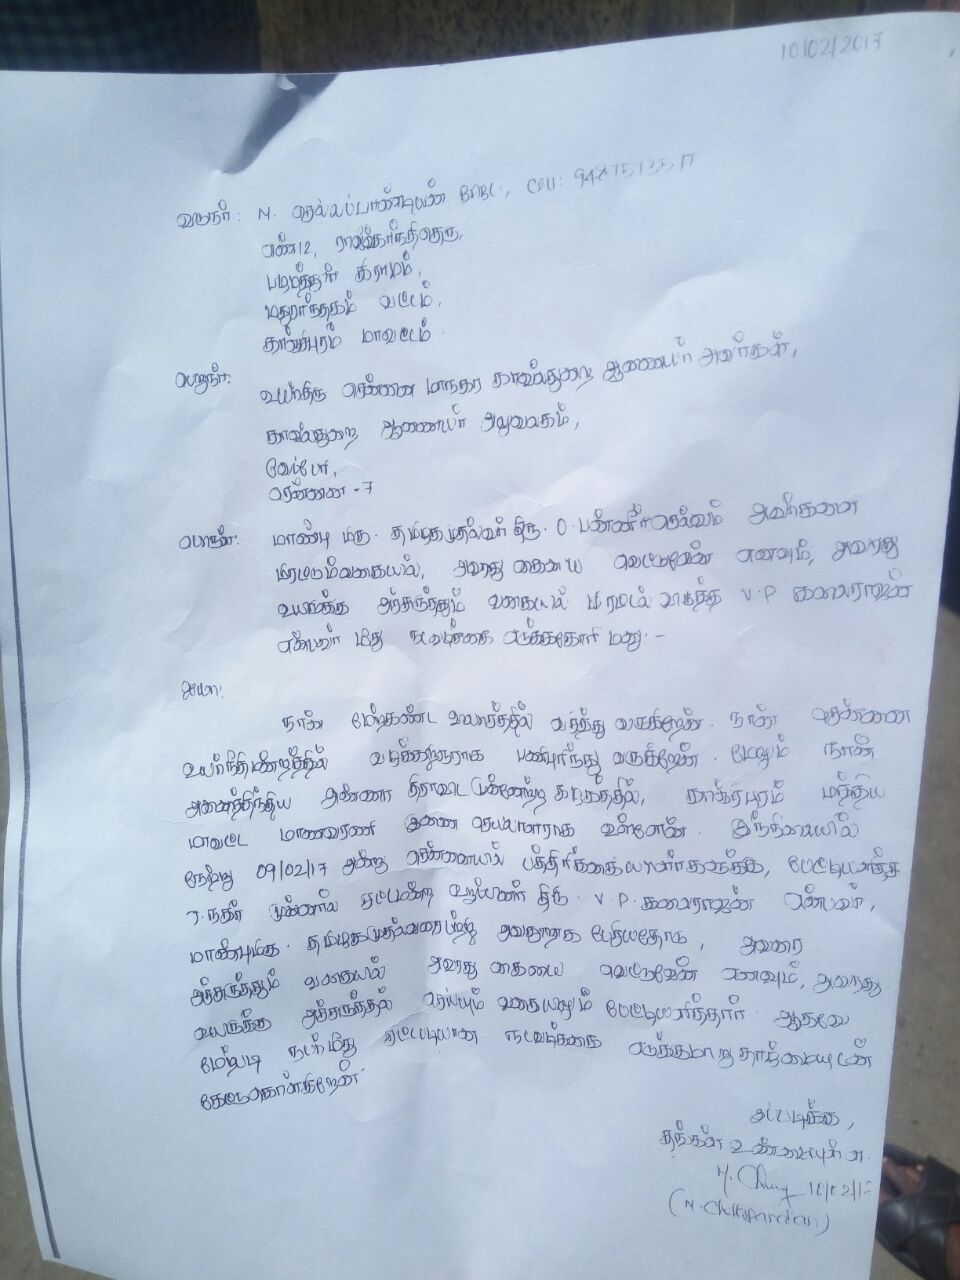 10/02/2017
வருநர்: N. செல்லப்பாண்டியன் BABL.,
எண்12,
கிராமம்,
மதுராந்தகம் வட்டம்.
காஞ்சிபுரம் மாவட்டம்.
பெறுநர்:
உயர்திரு சென்னை மாநகர காவல்துறை ஆணையர் அவர்கள்,
காவல்துறை ஆணையர் அலுவலகம்,
வேப்பேரி,
சென்னை -7
பொருள்: மாண்பு மிகு. தமிழக முதல்வர் திரு. O. பன்னீர்செல்வம் அவர்களை
மிரட்டும்வகையில், அவரது கையை வெட்டுவேன் எனவும், அவரது
அச்சுறுத்தும் வகையில் மிரட்டல் விடுத்த V.P. கலைராஜன்
என்பவர் மீது நடவடிக்கை எடுக்ககோரி மனு:-
ஐயா:
நான் மேற்கண்ட விலாசத்தில் வசித்து வருகிறேன். நான் சென்னை
உயர்நீதிமன்றத்தில் வழக்கறிஞராக பணிபுரிந்து வருகிறேன். மேலும் நான்
அனைத்திந்திய அண்ணா திராவிட முன்னேற்ற கழகத்தில், காஞ்சிபுரம் மத்திய
மாவட்ட மாணவரணி இணை செயலாளராக உள்ளேன். இந்நிலையில்
நேற்று 09/02/17 அன்று சென்னையில் பத்திரிக்கையாளர்களுக்கு, பேட்டியளித்த
T.நகர் முன்னாள் சட்டமன்ற உறுப்பினர் திரு. V.P. கலைராஜன் என்பவர்,
மாண்புமிகு. தமிழக முதல்வரைபற்றி அவதூறாக பேசியதோடு, அவரை
அச்சுறுத்தும் வகையில் அவரது கையை வெட்டுவேன் எனவும், அவரது
அச்சுறுத்தல் செய்யும் வகையிலும் பேட்டியளித்தார். ஆகவே
மேற்படி நபர்மீது சட்டபடியான நடவடிக்கை எடுக்குமாறு தாழ்மையுடன்
கேட்டுகொள்கிறேன்.
இப்படிக்கு,
தங்கள் உண்மையுள்ள.
10/02/17